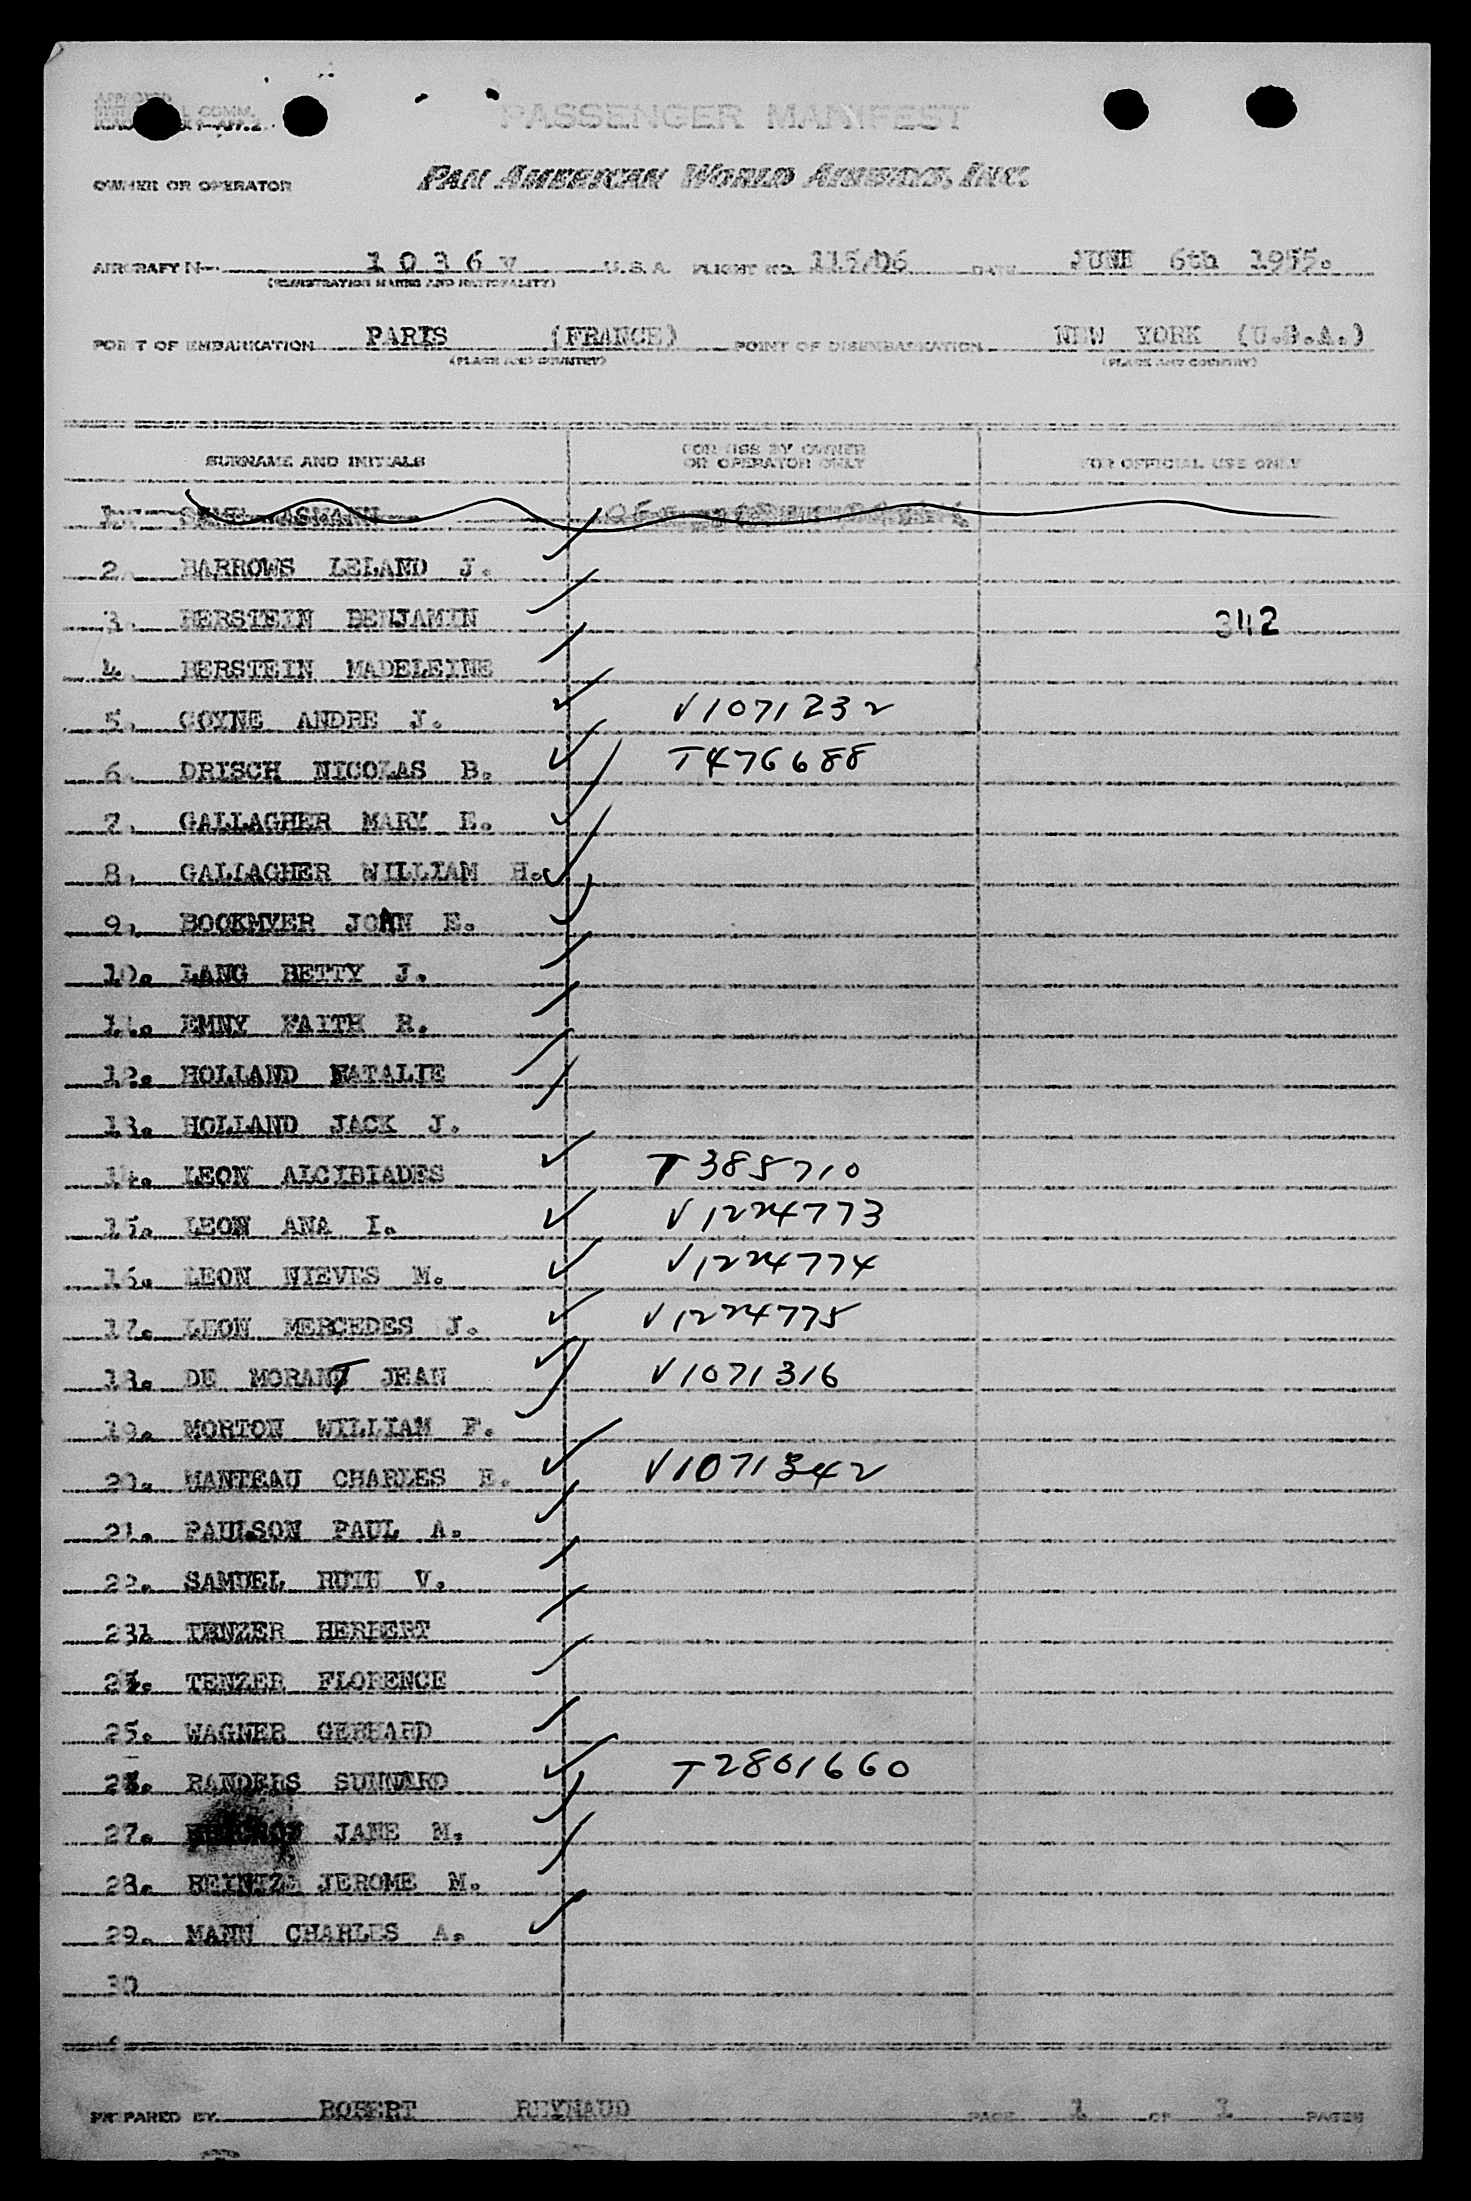 PASSENGER MANIFEST
OWNER OR OPERATOR PAN AMERICAN WORLD AIRWAYS, INC.
AIRCRAFT No. 1 0 3 6 V U.S.A. FLIGHT NO. 115/06 DATE JUNE 6th 1955.
(REGISTRATION MARKS AND NATIONALITY)
PORT OF EMBARKATION PARIS (FRANCE) POINT OF DISEMBARKATION NEW YORK (U.S.A.)
(PLACE AND COUNTRY) (PLACE AND COUNTRY)
SURNAME AND INITIALS FOR USE BY OWNER OR OPERATOR ONLY FOR OFFICIAL USE ONLY
1.
2. BARROWS LELAND J.
3. BERSTEIN BENJAMIN 342
4. BERSTEIN MADELEINE
5. COYNE ANDRE J. V1071232
6. DRISCH NICOLAS B. T476688
7. GALLAGHER MARY E.
8. GALLAGHER WILLIAM H.
9. BOOKMYER JOAN E.
10. LANG BETTY J.
11. EMNY FAITH R.
12. HOLLAND NATALIE
13. HOLLAND JACK J.
14. LEON ALCIBIADES T385710
15. LEON ANA I. V1224773
16. LEON NIEVES M. V1224774
17. LEON MERCEDES J. V1224775
18. DE MORANT JEAN V1071316
19. MORTON WILLIAM F.
20. MANTEAU CHARLES E. V1071342
21. PAULSON PAUL A.
22. SAMUEL RUTH V.
231 TENZER HERBERT
24. TENZER FLORENCE
25. WAGNER GERHARD
26. RANDERS T2801660
27. JANE M.
28. JEROME M.
29. MANN CHARLES A.
30
PREPARED BY ROBERT REYNAUD PAGE 1 OF 1 PAGES